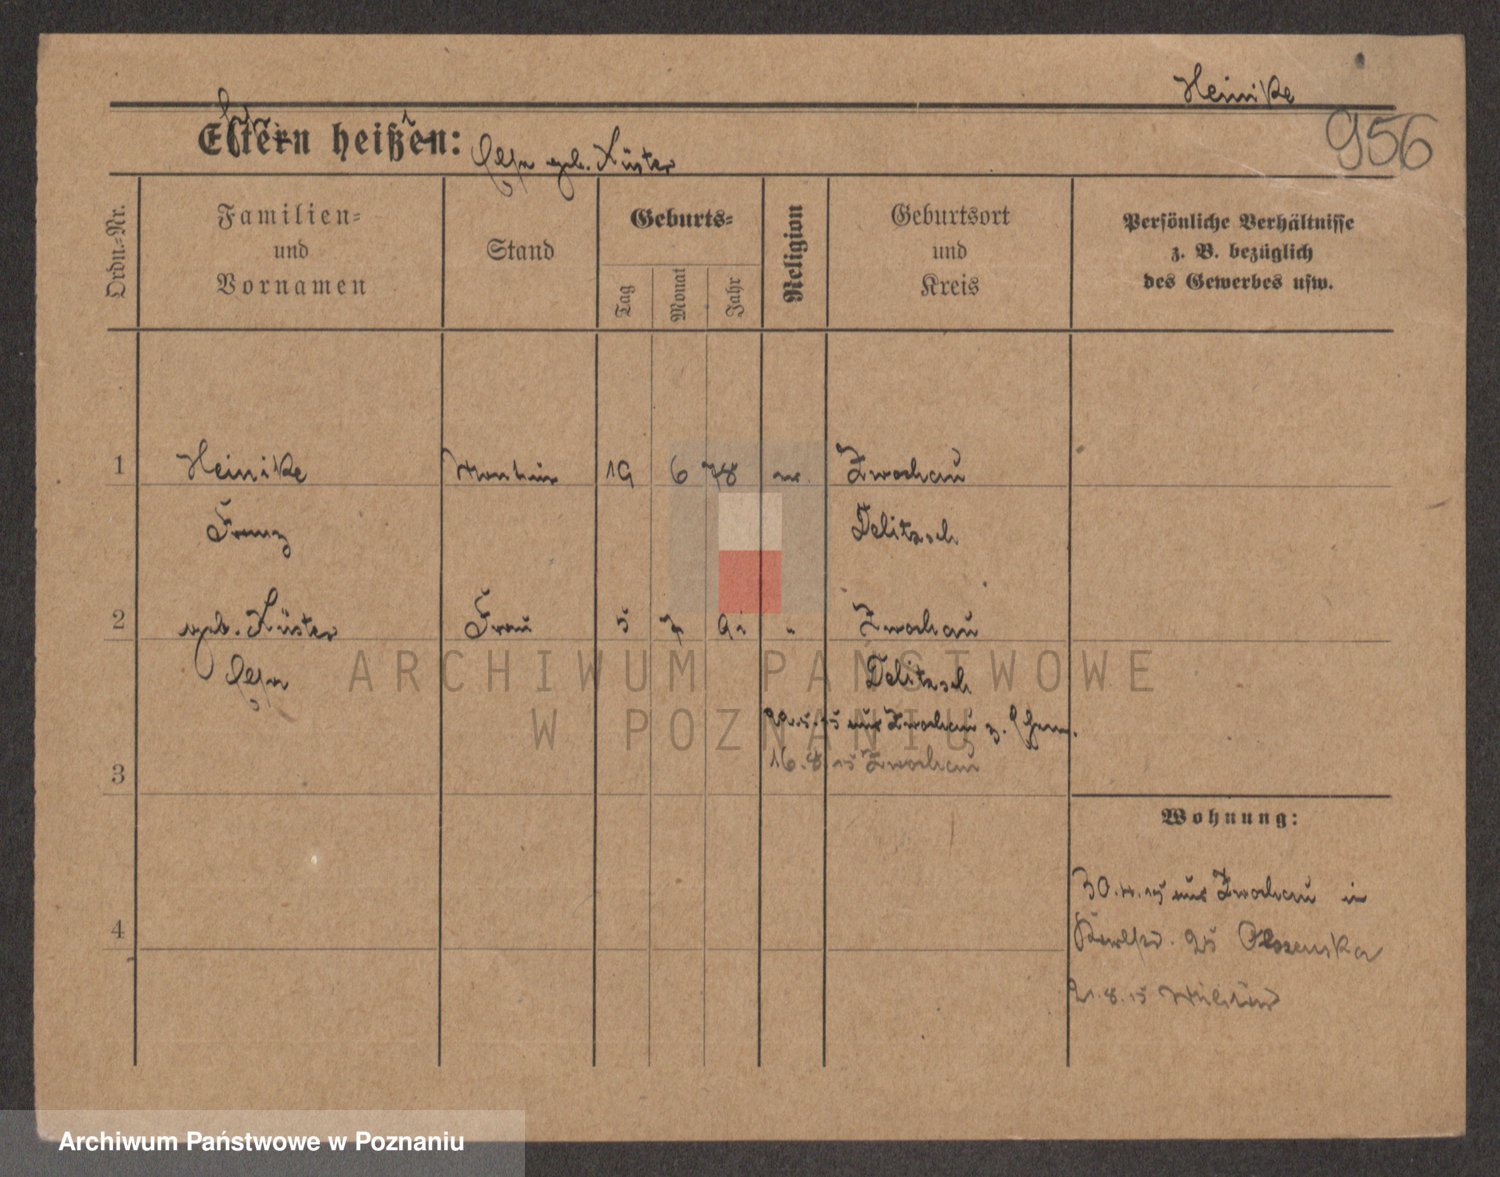 Heinike
956
Eltern heißen:
geb. Küster
Ordn.-Nr.
Familien-
und
Vornamen
Stand
Geburts-
Tag
Monat
Jahr
Religion
Geburtsort
und
Kreis
Persönliche Verhältnisse
z. B. bezüglich
des Gewerbes usw.
1
Heinike
19
6
78
Zwochau
Franz
Delitzsch
2
geb. Küster
Frau
5
7
Zwochau
Delitzsch
aus Zwochau z.
3
16.8.15 Zwochau
Wohnung:
30.4.15 aus Zwochau in
4
25
21.8.15
ARCHIWUM PAŃSTWOWE
W POZNANIU
Archiwum Państwowe w Poznaniu